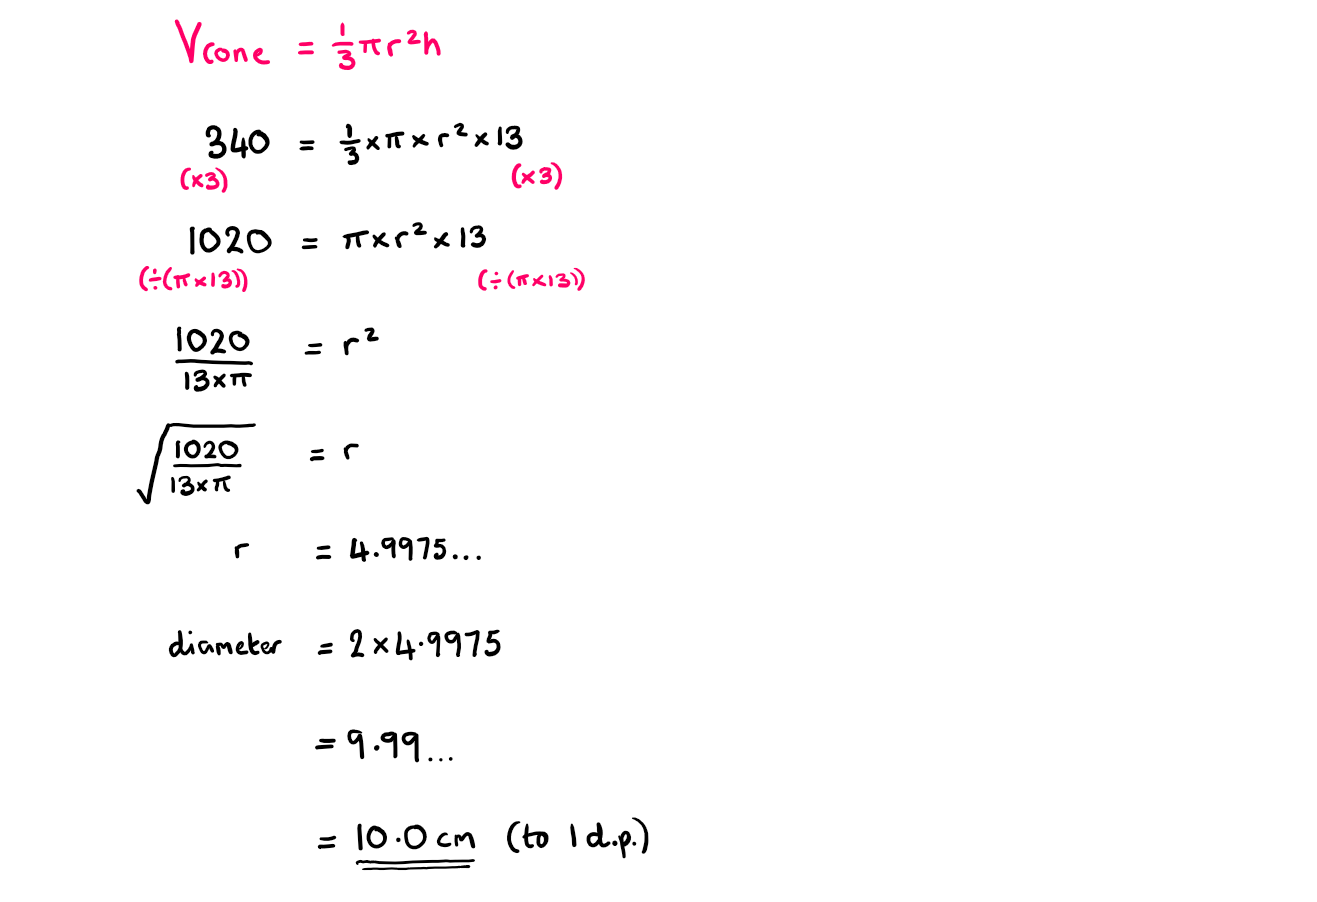 Vcone = 1/3 πr²h
340 = 1/3 × π × r² × 13
(×3) (×3)
1020 = π × r² × 13
(÷(π×13)) (÷(π×13))
1020/13×π = r²
√(1020/13×π) = r
r = 4.9975...
diameter = 2 × 4.9975
= 9.99...
= 10.0 cm (to 1 d.p.)